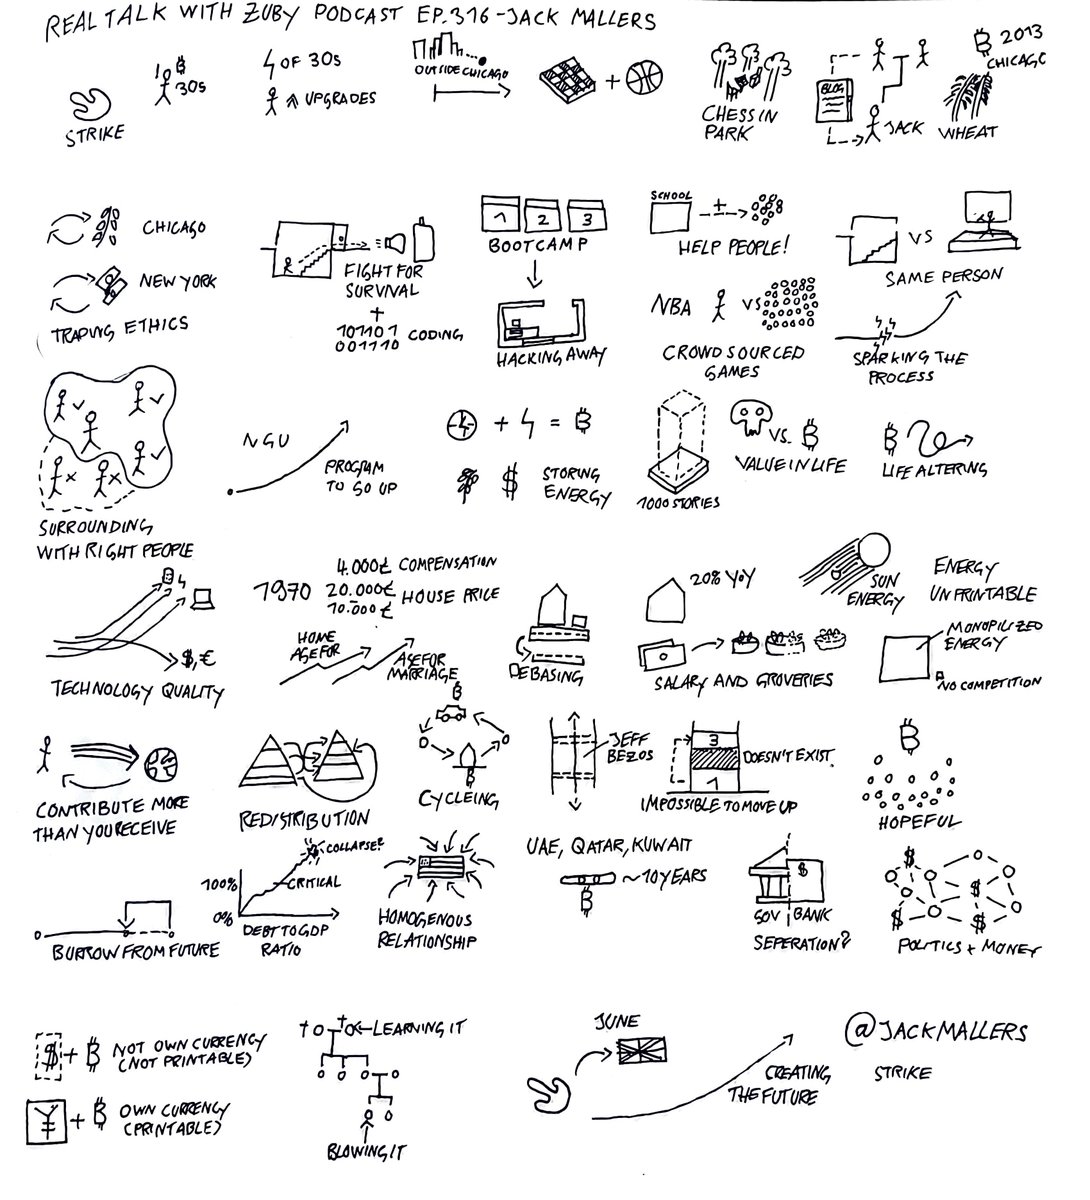 REAL TALK WITH ZUBY PODCAST EP.316 - JACK MALLERS
STRIKE
30S
OF 30S
UPGRADES
OUTSIDE CHICAGO
+
CHESS IN
PARK
BLOG
JACK
2013
CHICAGO
WHEAT
CHICAGO
NEW YORK
TRADING ETHICS
FIGHT FOR
SURVIVAL
+
101101 CODING
001110
1 2 3
BOOTCAMP
HACKING AWAY
SCHOOL
+
HELP PEOPLE!
NBA VS
CROWDSOURCED
GAMES
VS
SAME PERSON
SPARKING THE
PROCESS
SURROUNDING
WITH RIGHT PEOPLE
NGU
PROGRAM
TO GO UP
+ = ₿
$ STORING
ENERGY
1000 STORIES
VS. ₿
VALUE IN LIFE
₿
LIFE ALTERING
$,€
TECHNOLOGY QUALITY
1970
4.000£ COMPENSATION
20.000£ HOUSE PRICE
10.000£
HOME
AGE FOR
AGE FOR
MARRIAGE
DEBASING
20% YOY
SALARY AND GROVERIES
SUN
ENERGY
ENERGY
UNPRINTABLE
MONOPILIZED
ENERGY
NO COMPETITION
CONTRIBUTE MORE
THAN YOU RECEIVE
REDISTRIBUTION
₿
₿
CYCLEING
JEFF
BEZOS
3
1
DOESN'T EXIST.
IMPOSSIBLE TO MOVE UP
₿
HOPEFUL
BURROW FROM FUTURE
100%
0%
COLLAPSE?
CRITICAL
DEBT TO GDP
RATIO
HOMOGENOUS
RELATIONSHIP
UAE, QATAR, KUWAIT
~10 YEARS
₿
$
GOV BANK
SEPERATION?
$ $ $ $
POLITICS + MONEY
$ + ₿ NOT OWN CURRENCY
(NOT PRINTABLE)
¥ + ₿ OWN CURRENCY
(PRINTABLE)
LEARNING IT
BLOWING IT
JUNE
CREATING
THE FUTURE
@JACKMALLERS
STRIKE